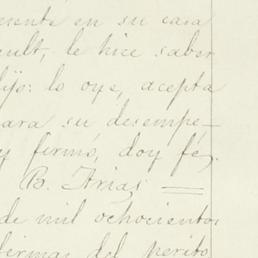 mente en su casa
ault, le hice saber
dijo: lo oye, acepta
para su desempe-
y firmó, doy fé.
B. Arias
de mil ochocientos
firmas del perito